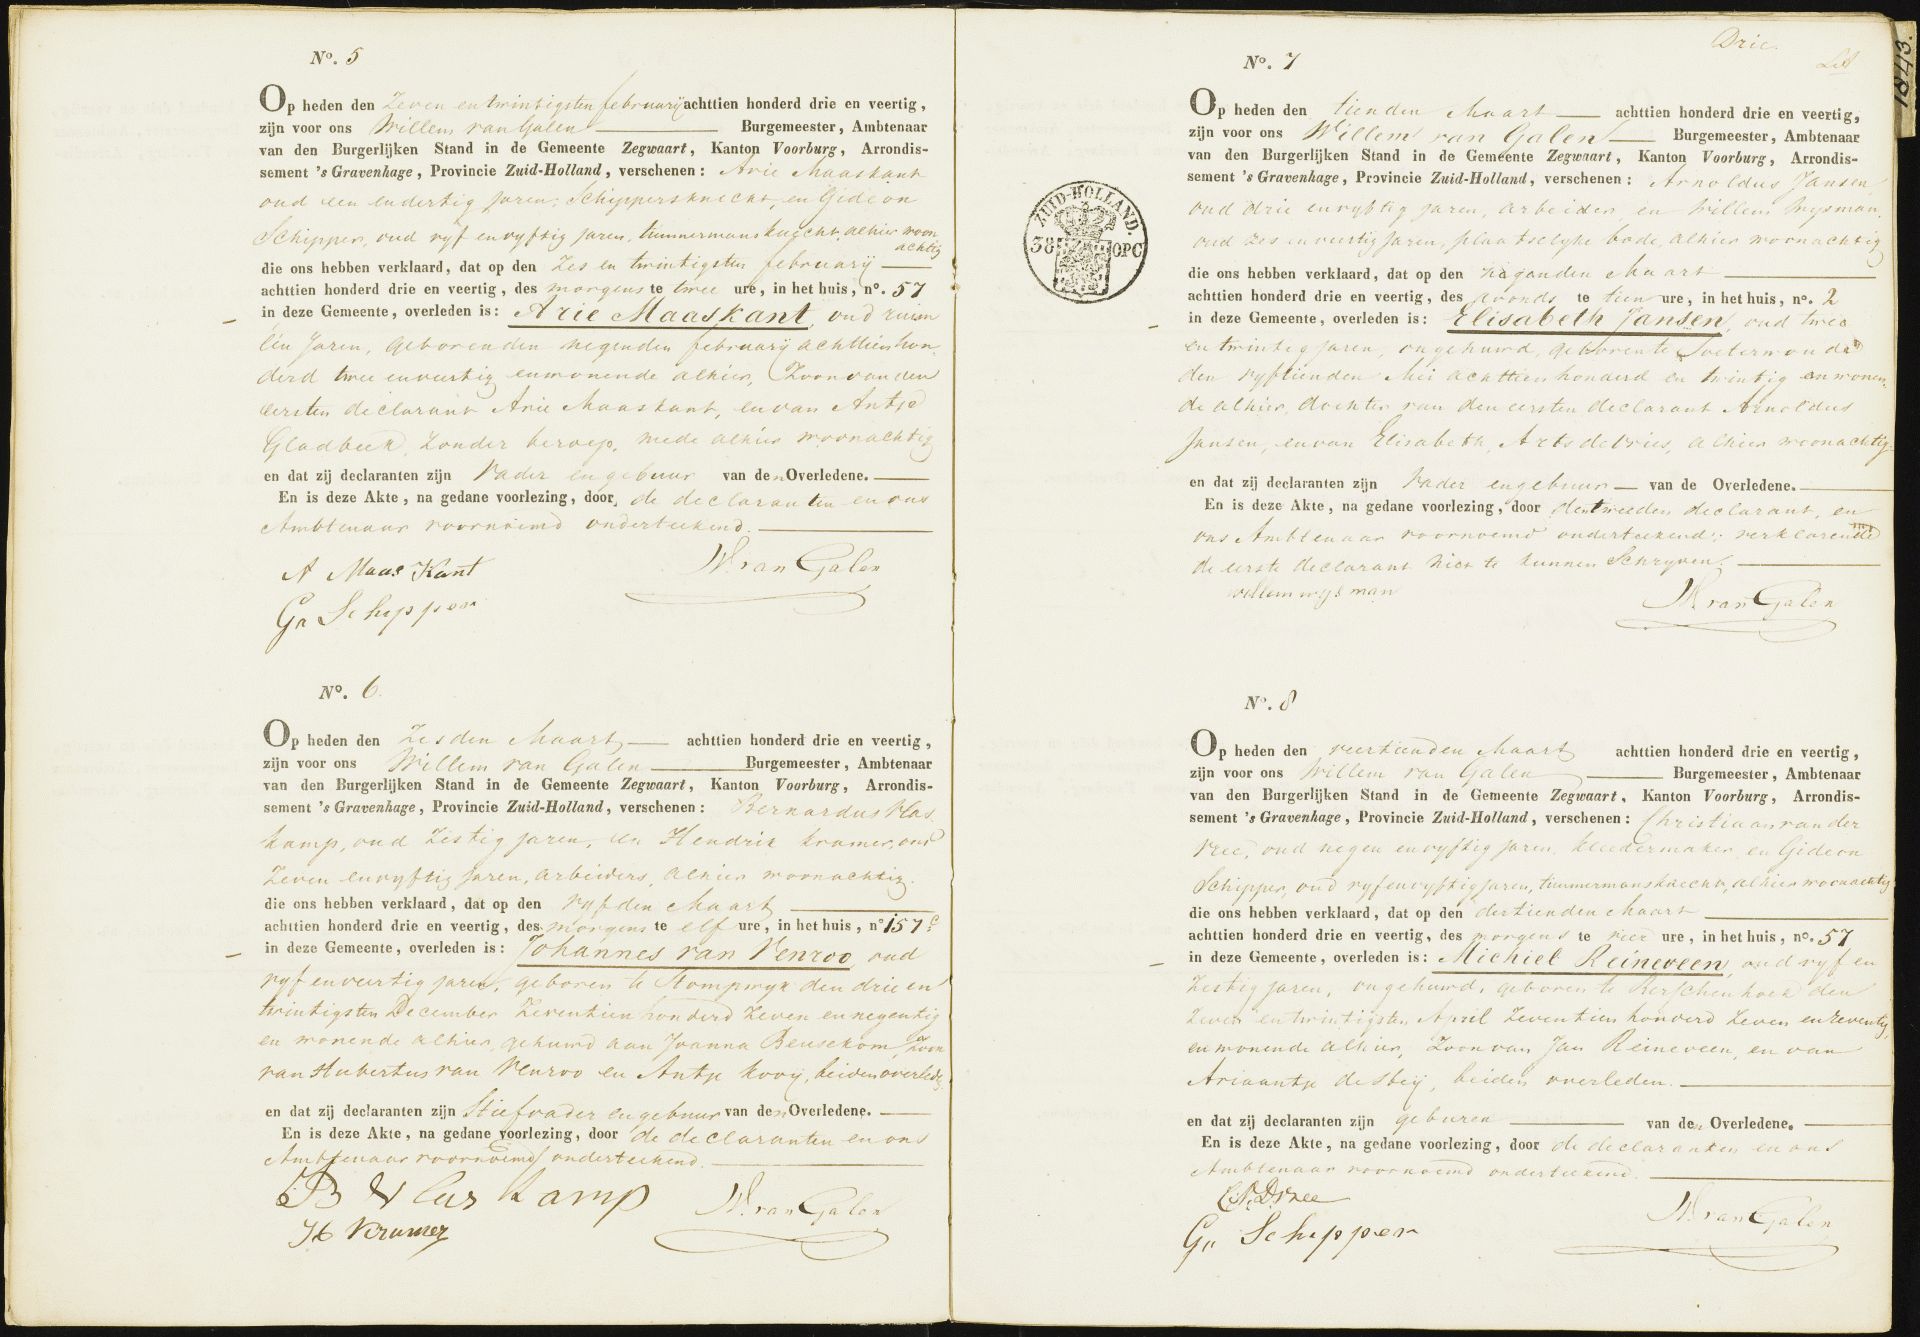 N⁰. 5
Op heden den Zeven en twintigsten februarij achttien honderd drie en veertig,
zijn voor ons Willem van Galen Burgemeester, Ambtenaar
van den Burgerlijken Stand in de Gemeente Zegwaart, Kanton Voorburg, Arrondis-
sement 's Gravenhage, Provincie Zuid-Holland, verschenen: Arie Maaskant
oud een en dertig jaren, Schippersknecht, en Gideon
Schipper, oud vyf en vyftig jaren, timmermansknecht, alhier woon
achtig
die ons hebben verklaard, dat op den Zes en twintigsten februarij
achttien honderd drie en veertig, des morgens te twee ure, in het huis, n⁰. 57
in deze Gemeente, overleden is: Arie Maaskant, oud ruim
één Jaren, geboren den negenden februarij achttien hon
derd twee en veertig en wonende alhier, Zoon van den
eersten declarant Arie Maaskant, en van Antje
Gladbeek, Zonder beroep, mede alhier woonachtig
en dat zij declaranten zijn Vader en gebuur van den Overledene.
En is deze Akte, na gedane voorlezing, door de declaranten en ons
Ambtenaar voornoemd onderteekend.
A Maas Kant W. van Galen
Gn Schipper
N⁰. 6.
Op heden den Zesden Maart achttien honderd drie en veertig,
zijn voor ons Willem van Galen Burgemeester, Ambtenaar
van den Burgerlijken Stand in de Gemeente Zegwaart, Kanton Voorburg, Arrondis-
sement 's Gravenhage, Provincie Zuid-Holland, verschenen: Bernardus Vlas
kamp, oud Zestig jaren, en Hendrik Kramer, oud
Zeven en vyftig jaren, arbeiders, alhier woonachtig.
die ons hebben verklaard, dat op den vyfden Maart
achttien honderd drie en veertig, des morgens te elf ure, in het huis, n⁰ 157 c
in deze Gemeente, overleden is: Johannes van Venroo, oud
vyf en veertig jaren, geboren te Stompwyk den drie en
twintigsten December Zeventien honderd Zeven en negentig
en wonende alhier, gehuwd aan Joanna Beusekom, Zoon
van Hubertus van Venroo en Antje Kooij, beiden overleden
en dat zij declaranten zijn Stiefvader en gebuur van den Overledene.
En is deze Akte, na gedane voorlezing, door de declaranten en ons
Ambtenaar voornoemd onderteekend.
B Vlas kamp W. van Galen
H Kramer
1843.
Drie
ZUID-HOLLAND.
38 OPC
N⁰. 7
Op heden den tienden Maart achttien honderd drie en veertig,
zijn voor ons Willem van Galen Burgemeester, Ambtenaar
van den Burgerlijken Stand in de Gemeente Zegwaart, Kanton Voorburg, Arrondis-
sement 's Gravenhage, Provincie Zuid-Holland, verschenen: Arnoldus Jansen,
oud drie en vyftig jaren, arbeider, en Willem Wysman,
oud zes en veertig jaren, plaatselyke bode, alhier woonachtig
die ons hebben verklaard, dat op den negenden Maart
achttien honderd drie en veertig, des avonds te tien ure, in het huis, n⁰. 2
in deze Gemeente, overleden is: Elisabeth Jansen, oud twee
en twintig jaren, ongehuwd, geboren te
den vyftienden Mei achttien honderd en twintig en wonen
de alhier, dochter van den eersten declarant Arnoldus
Jansen, en van Elisabeth, Arts de Vries, alhier woonachtig
en dat zij declaranten zijn Vader en gebuur van de Overledene.
En is deze Akte, na gedane voorlezing, door den tweeden declarant, en
ons Ambtenaar voornoemd onderteekend; verklarende
de eerste declarant niet te kunnen Schryven.
willem wysman W. van Galen
N⁰. 8
Op heden den veertienden Maart achttien honderd drie en veertig,
zijn voor ons Willem van Galen Burgemeester, Ambtenaar
van den Burgerlijken Stand in de Gemeente Zegwaart, Kanton Voorburg, Arrondis-
sement 's Gravenhage, Provincie Zuid-Holland, verschenen: Christiaan van der
Vree, oud negen en vyftig jaren, kleedermaker, en Gideon
Schipper, oud vyf en vyftig jaren, timmermansknecht, alhier woonachtig
die ons hebben verklaard, dat op den dertienden Maart
achttien honderd drie en veertig, des morgens te vier ure, in het huis, n⁰. 57
in deze Gemeente, overleden is: Michiel Reineveen, oud vyf en
Zestig jaren, ongehuwd, geboren te Berschenhoek den
Zeven en twintigsten April Zeventien honderd Zeven en zeventig,
en wonende alhier, Zoon van Jan Reineveen, en van
Ariaantje de Heij, beiden overleden.
en dat zij declaranten zijn geburen van den Overledene.
En is deze Akte, na gedane voorlezing, door de declaranten en ons
Ambtenaar voornoemd onderteekend.
W. van Galen
Gn Schipper